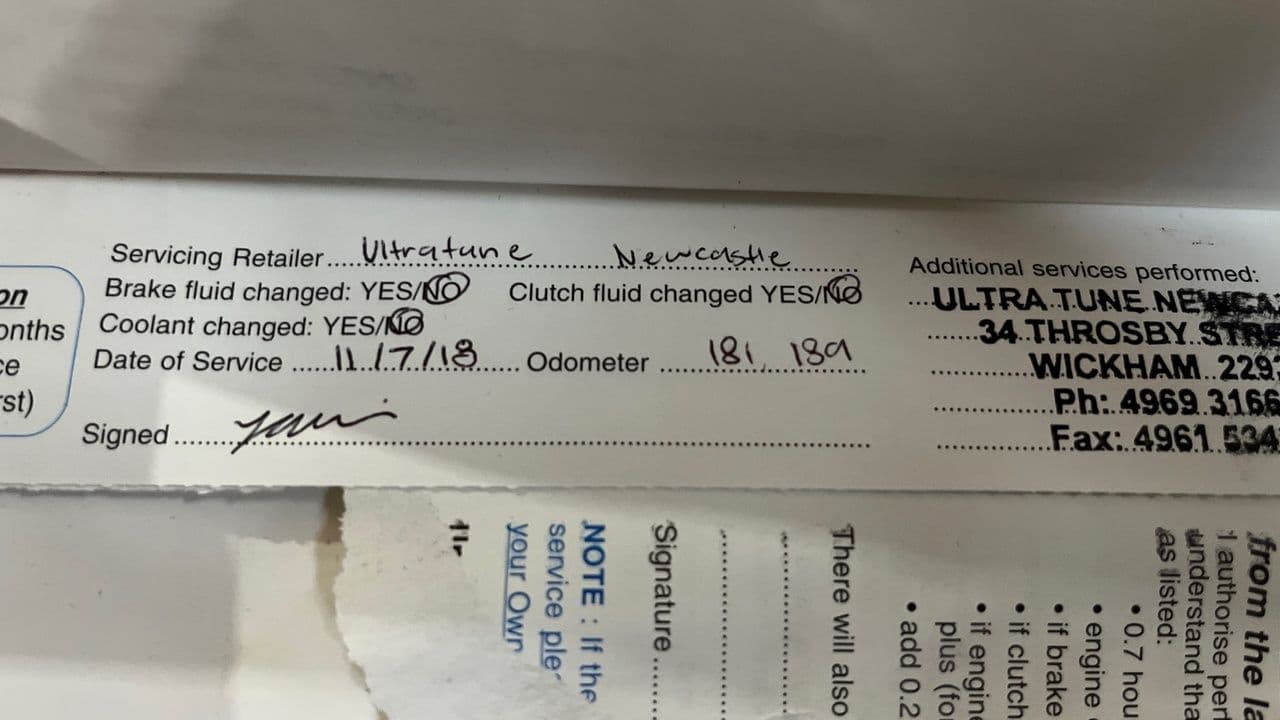 Servicing Retailer.....Ultratune Newcastle
Brake fluid changed: YES/NO Clutch fluid changed YES/NO
Coolant changed: YES/NO
Date of Service ......11/7/18...... Odometer ......181,189
Signed
Additional services performed:
...ULTRA TUNE NEWCA
.......34 THROSBY STRE
WICKHAM 229
Ph: 4969 3166
Fax: 4961 534
on
onths
ce
rst)
from the la
I authorise per
understand tha
as listed:
• 0.7 hou
• engine
• if brake
• if clutch
• if engine
plus (fo
• add 0.2
There will also
Signature.......
NOTE : If the
service ple
your Own